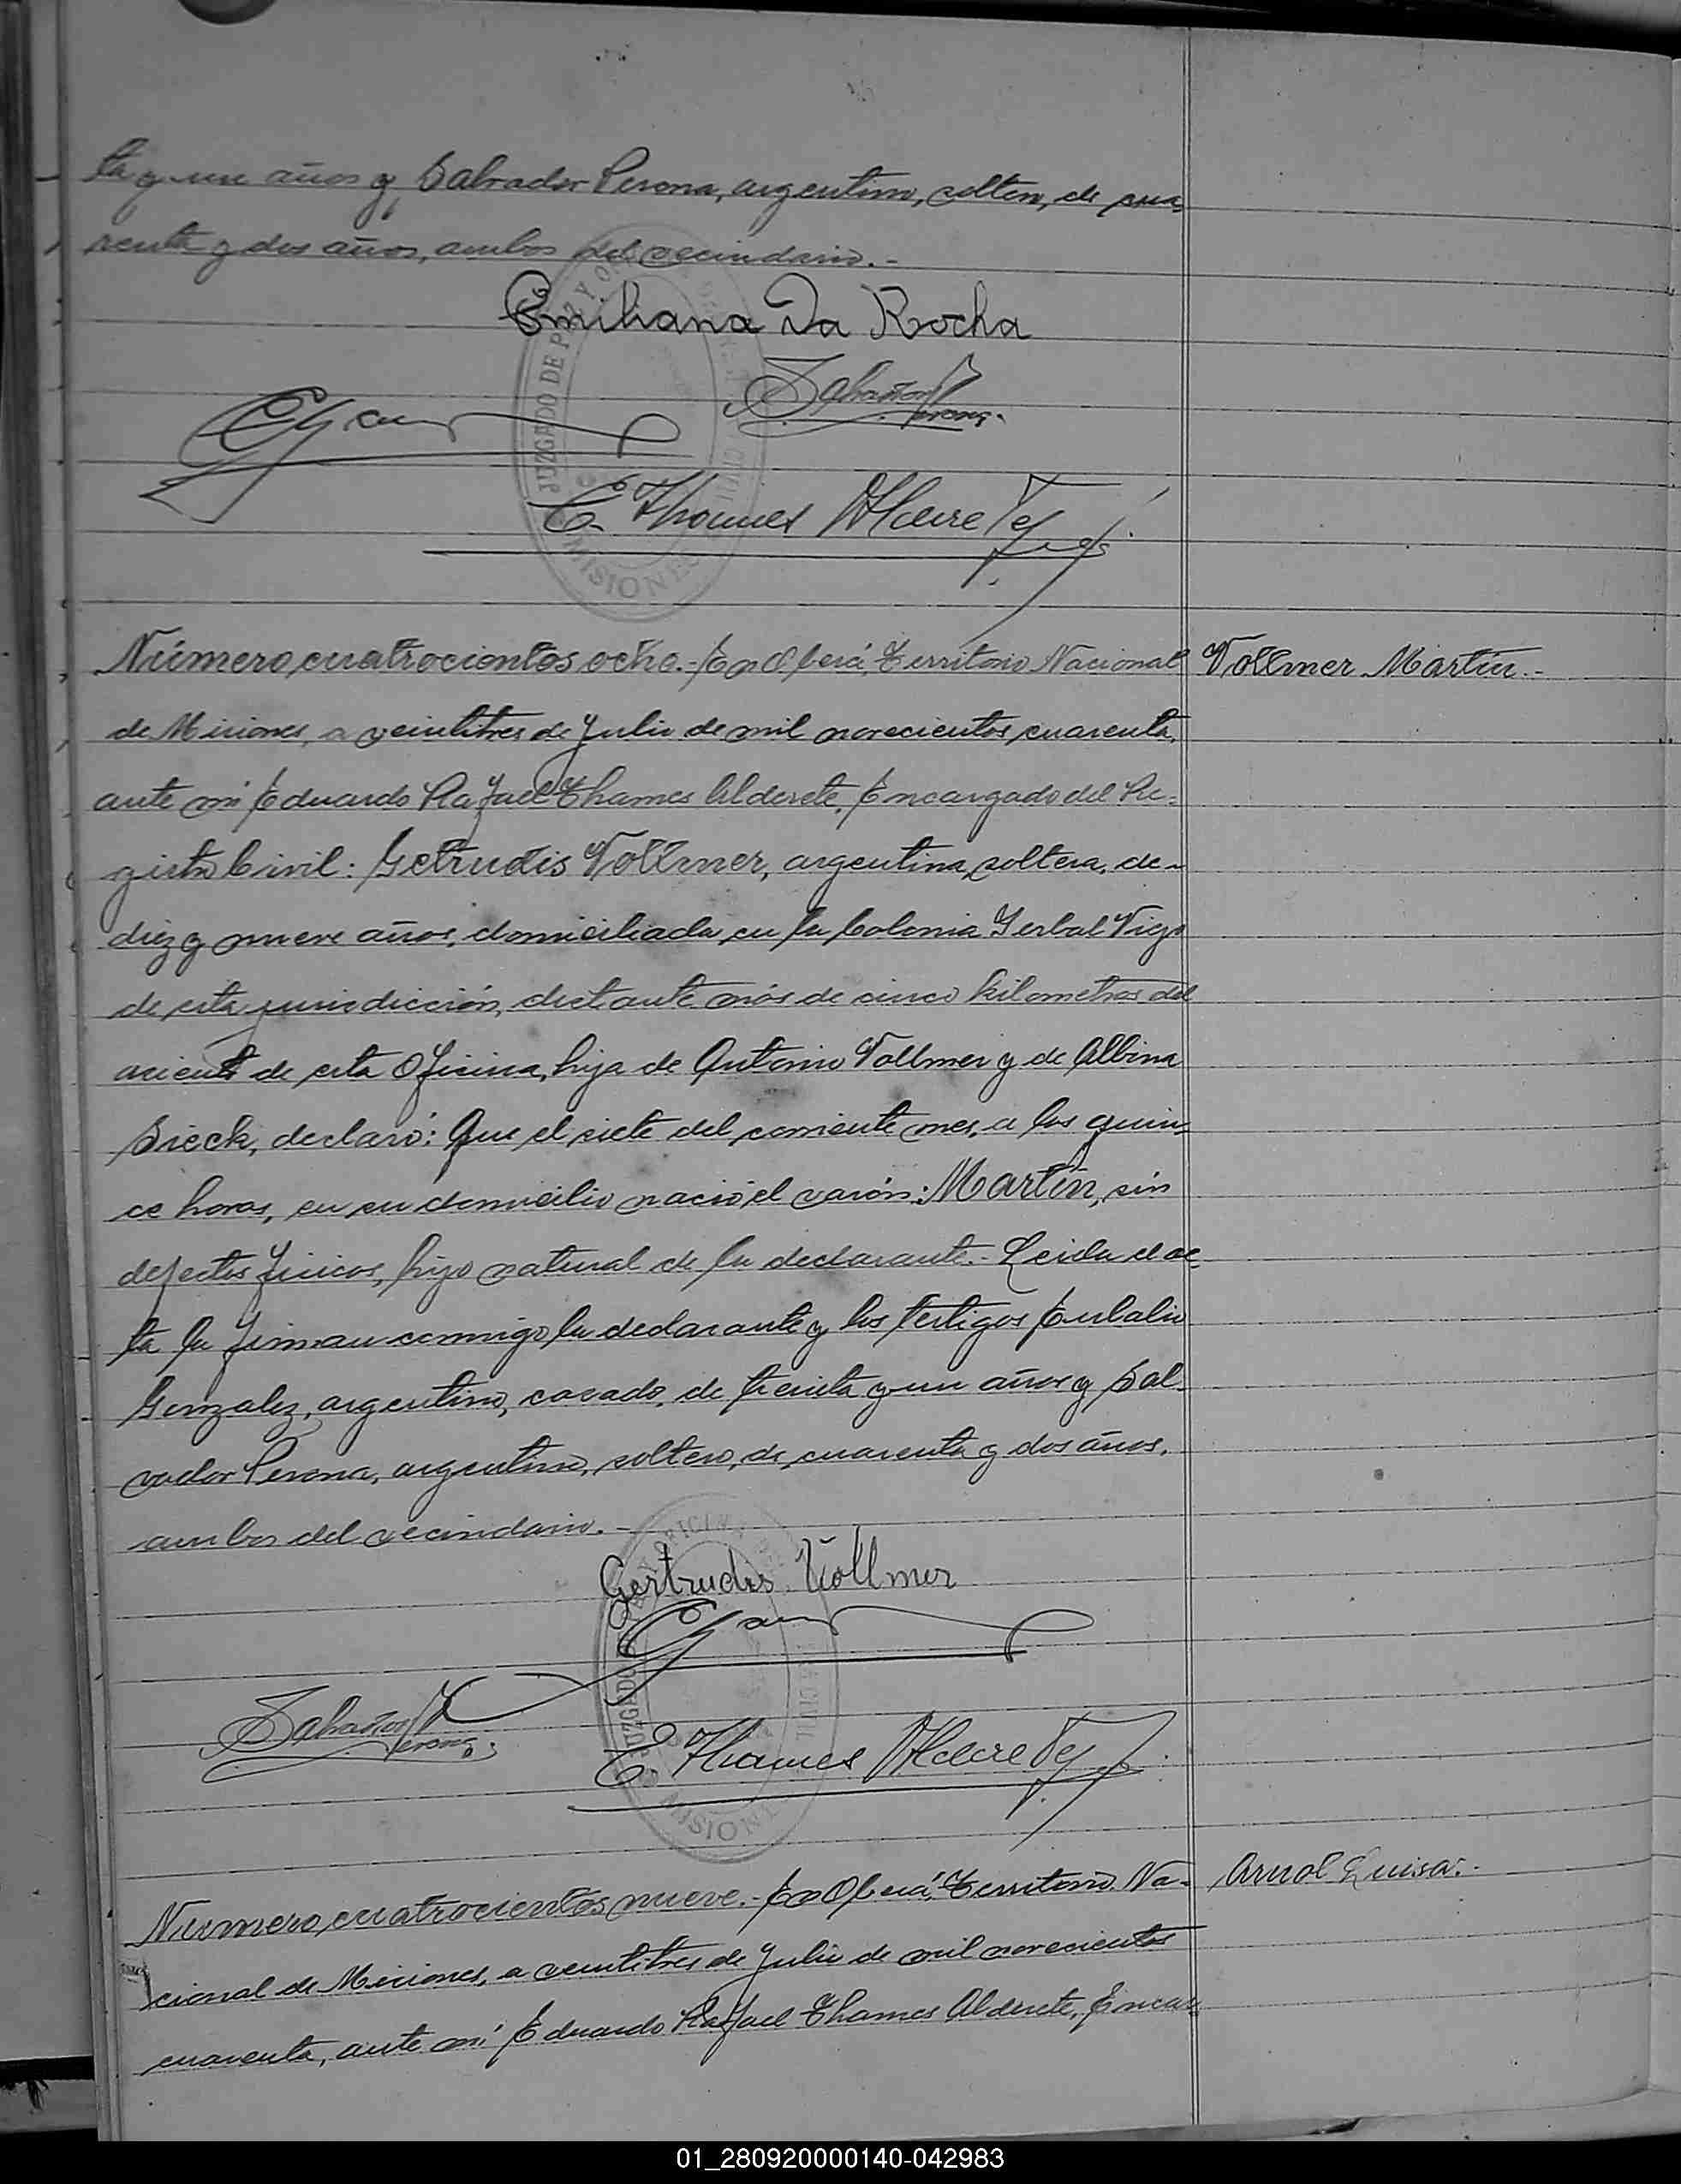 ta y un años y Salvador Perona, argentino, soltero, de cua-
renta y dos años, ambos del vecindario.-
Emiliana Da Rocha
Salvador Perona
E. Thames Alderete
JUZGADO DE PAZ Y
MISIONES
Número cuatrocientos ocho.- En Oberá, Territorio Nacional
Vollmer Martín.-
de Misiones, a veintitres de Julio de mil novecientos cuarenta,
ante mí Eduardo Rafael Thames Alderete, Encargado del Re-
gistro Civil: Getrudis Vollmer, argentina, soltera, de
diez y nueve años, domiciliada en la Colonia Yerbal Viejo
de esta jurisdicción, distante más de cinco kilometros del
asiento de esta Oficina, hija de Antonio Vollmer y de Albina
Sieck, declaró: Que el siete del corriente mes, a las quin-
ce horas, en su domicilio nació el varón: Martín, sin
defectos físicos, hijo natural de la declarante.- Leida el ac-
ta la firman conmigo la declarante y los testigos Eulalio
Gonzalez, argentino, casado, de treinta y un años y Sal-
vador Perona, argentino, soltero, de cuarenta y dos años,
ambos del vecindario.-
Gertrudis Vollmer
Salvador Perona
E. Thames Alderete
JUZGADO
MISIONES
Número cuatrocientos nueve.- En Oberá, Territorio Na-
Arnol Luisa.-
cional de Misiones, a veintitres de Julio de mil novecientos
cuarenta, ante mí Eduardo Rafael Thames Alderete, Encar-
01_280920000140-042983